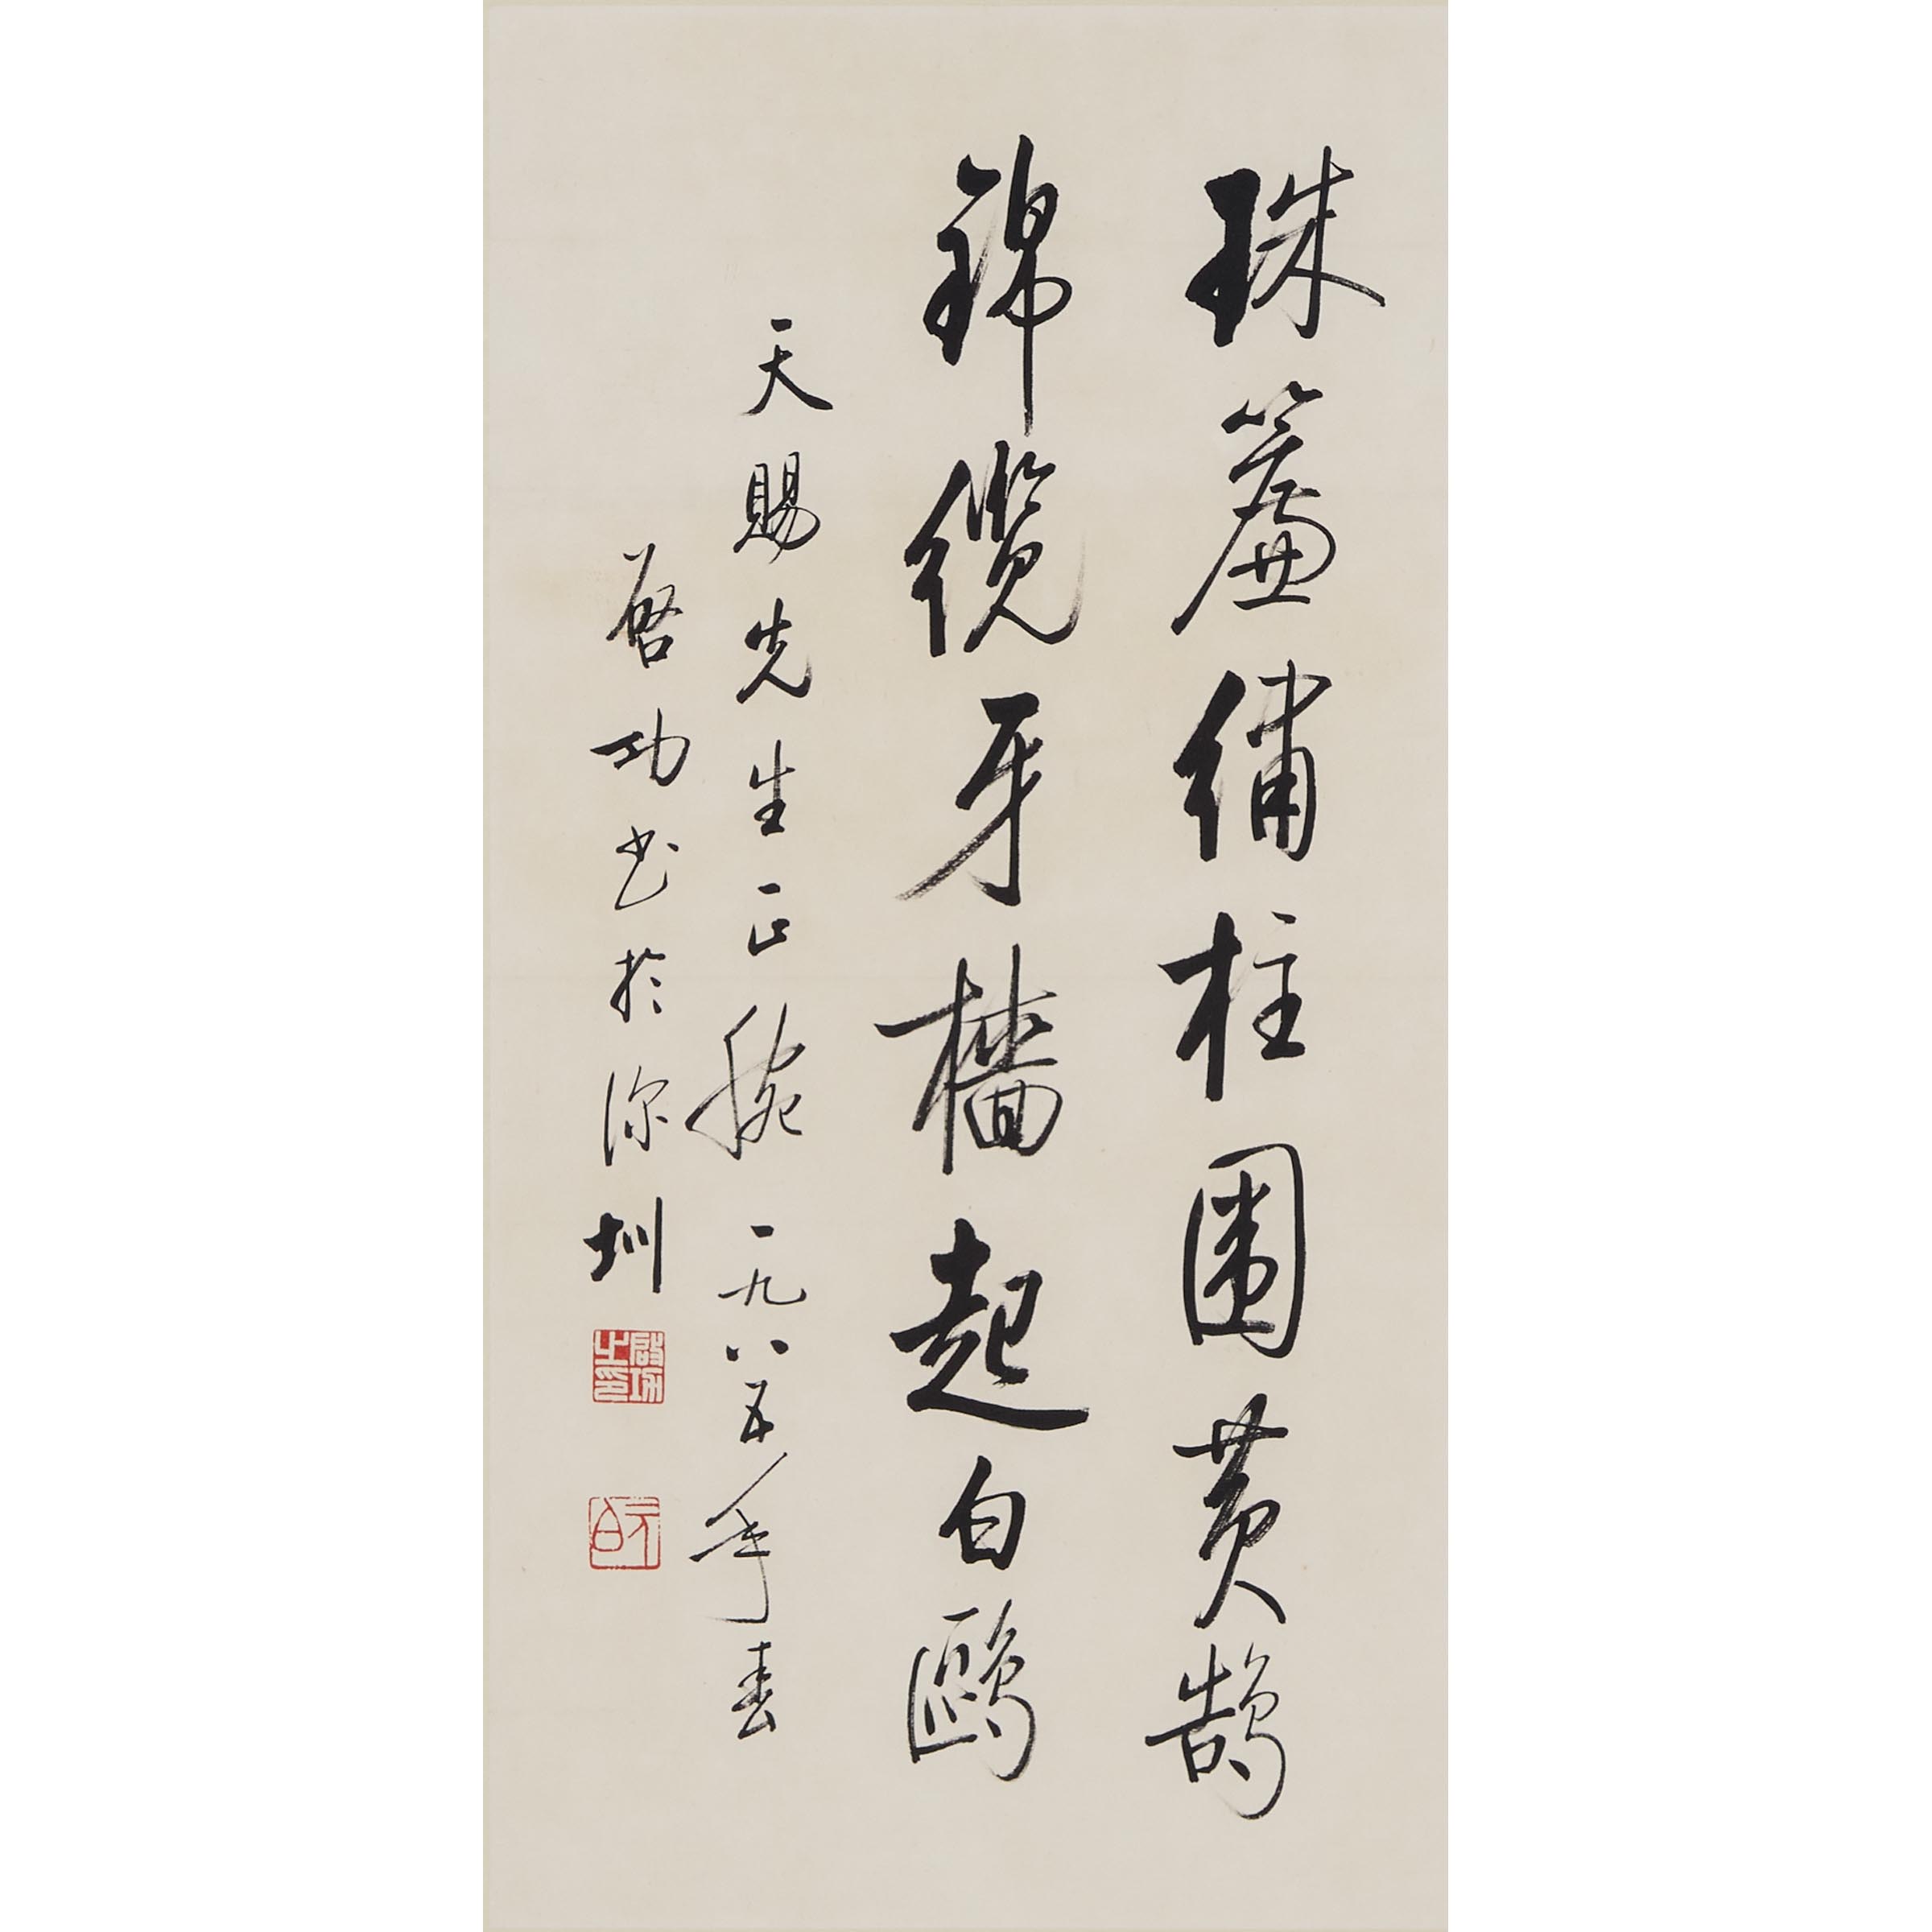 珠簾繡柱圍黃鵠
錦纜牙檣起白鷗
天賜先生正腕 一九八五年春
啓功書於深圳
啟功之印
元白